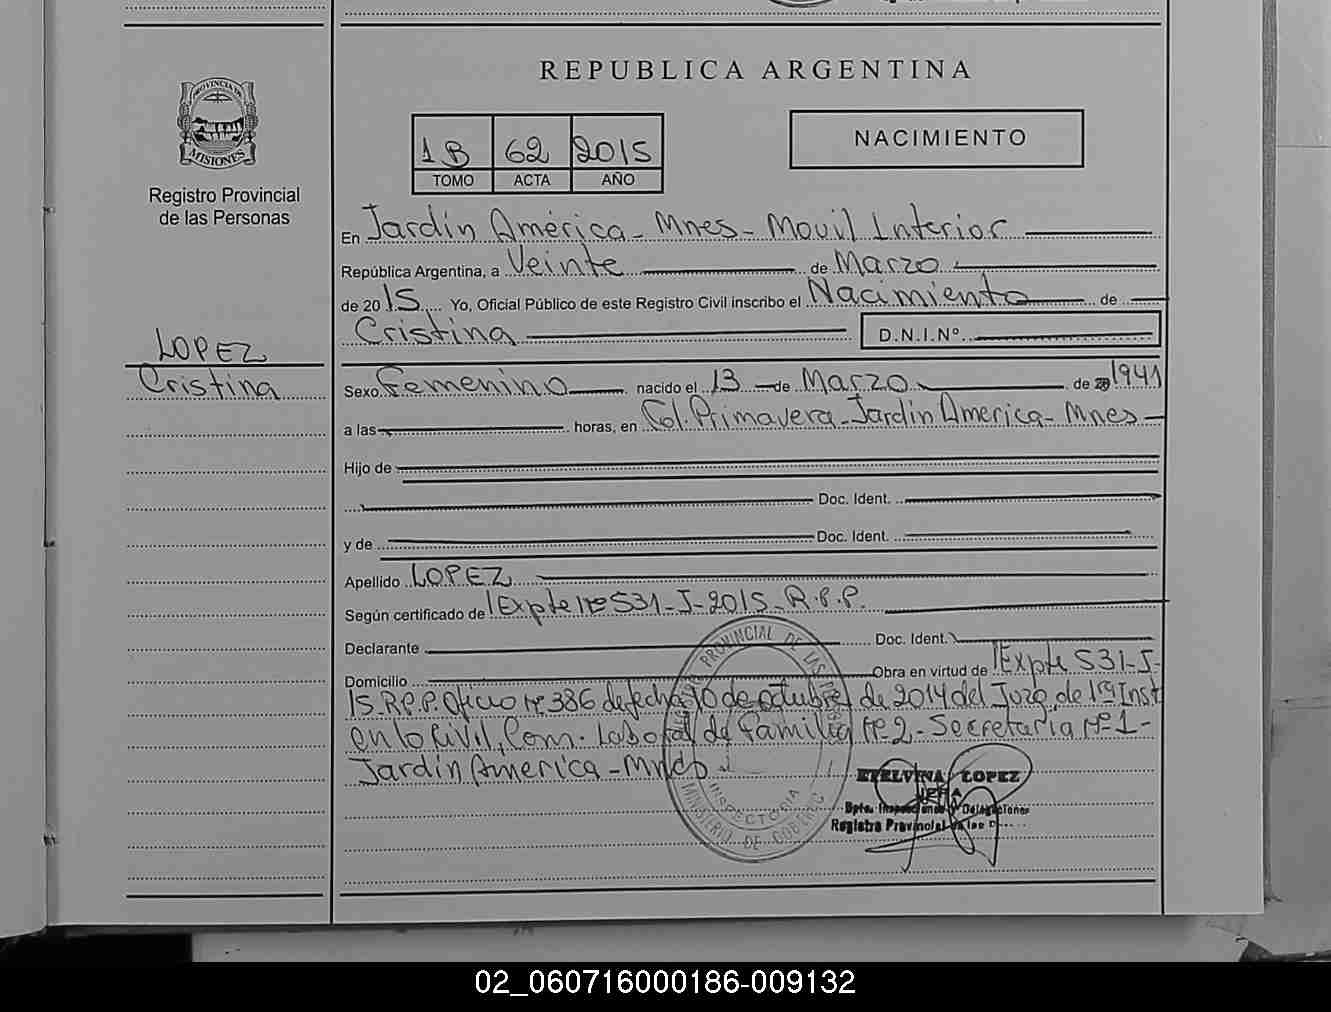 REPUBLICA ARGENTINA
PROVINCIA DE
MISIONES
Registro Provincial
de las Personas
1B 62 2015
TOMO ACTA AÑO
NACIMIENTO
En Jardín América - Mnes - Movil Interior
República Argentina, a Veinte de Marzo
de 2015 Yo, Oficial Público de este Registro Civil inscribo el Nacimiento de
Cristina D.N.I.Nº
LOPEZ
Cristina
Sexo Femenino nacido el 13 de Marzo de 1941
a las horas, en Col. Primavera - Jardín America - Mnes -
Hijo de
Doc. Ident.
y de Doc. Ident.
Apellido LOPEZ
Según certificado de Expte Nº 531-J-2015-R.P.P.
Declarante Doc. Ident.
Domicilio Obra en virtud de Expte 531-J-
15-R.P.P. Oficio Nº 386 de fecha 10 de octubre de 2014 del Juzg. de 1ra Inst
en lo Civil, Com. Laboral de Familia Nº 2 - Secretaria Nº 1 -
Jardín America - Mnes
PROVINCIAL DE LAS
INSPECTORIA
MINISTERIO DE GOBIERNO
ETELVINA LOPEZ
JEFA
Dpto. Inspecciones y Delegaciones
Registro Provincial de las
02_060716000186-009132